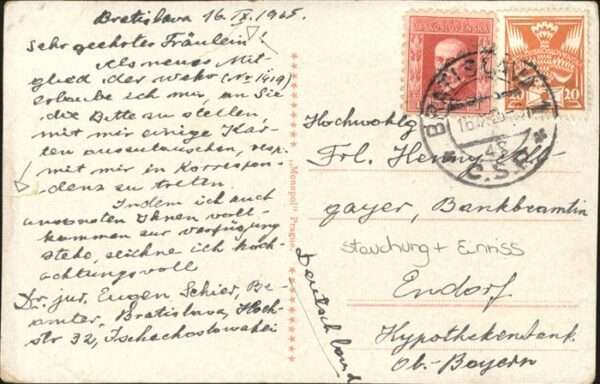 Bratislava 16. IX. 1925.
Sehr geehrtes Fräulein!
Als neues Mit-
glied der (No 1419)
erlaube ich mir, an Sie
die Bitte zu stellen,
mit mir einige Kar-
ten auszutauschen, resp.
mit mir in Korrespon-
denz zu treten.
Indem ich auch
ansonsten Ihnen voll-
kommen zur Verfügung
stehe, zeichne ich hoch-
achtungsvoll
Dr. jur. Eugen Schier, Be-
amter, Bratislava, Hoch-
str 32, Tschechoslowakei
"Monopol" Prague.
ČESKOSLOVENSKÁ
20
BRATISLAVA 1
Č.S.R.
Hochwohlg
Frl. Henny
gayer, Bankbeamtin
Stauchung + Einriss
Endorf
Hypothekenbank
Ob.-Bayern
Deutschland